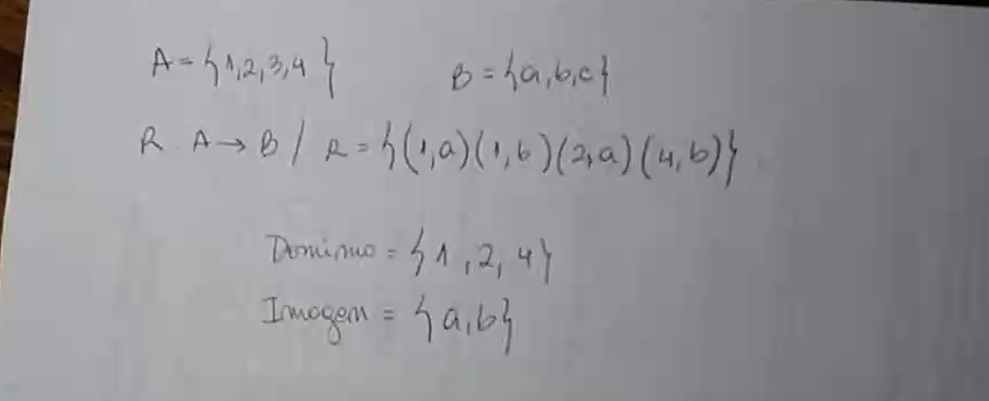 A = {1,2,3,4} B = {a,b,c}
R A → B / R = {(1,a)(1,b)(2,a)(4,b)}
Domínio = {1,2,4}
Imagem = {a,b}